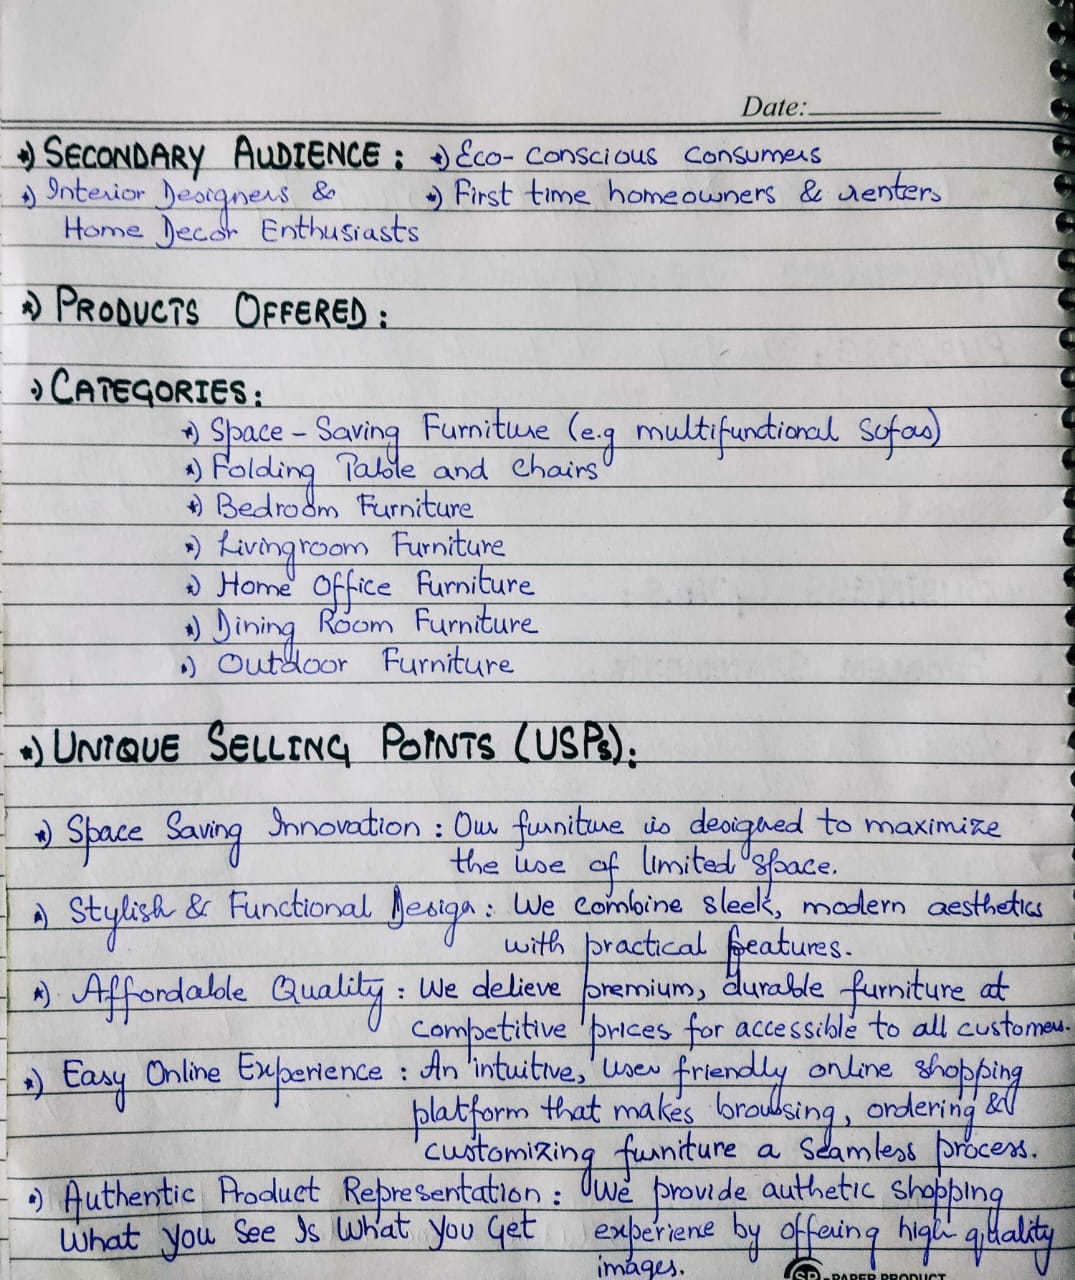 Date:
SECONDARY AUDIENCE : Eco-conscious consumers
Interior Designers & First time homeowners & renters
Home Decor Enthusiasts
PRODUCTS OFFERED :
CATEGORIES:
Space-Saving Furniture (e.g multifunctional sofas)
Folding Table and Chairs
Bedroom Furniture
Livingroom Furniture
Home Office Furniture
Dining Room Furniture
Outdoor Furniture
UNIQUE SELLING POINTS (USPs):
Space Saving Innovation : Our furniture is designed to maximize
the use of limited space.
Stylish & Functional Design : We combine sleek, modern aesthetics
with practical features.
Affordable Quality : We delieve premium, durable furniture at
competitive prices for accessible to all customers.
Easy Online Experience : An intuitive, user friendly online shopping
platform that makes browsing, ordering &
customizing furniture a seamless process.
Authentic Product Representation : We provide authetic shopping
What You See Is What You Get experiene by offering high quality
images.
SP-PAPER PRODUCT